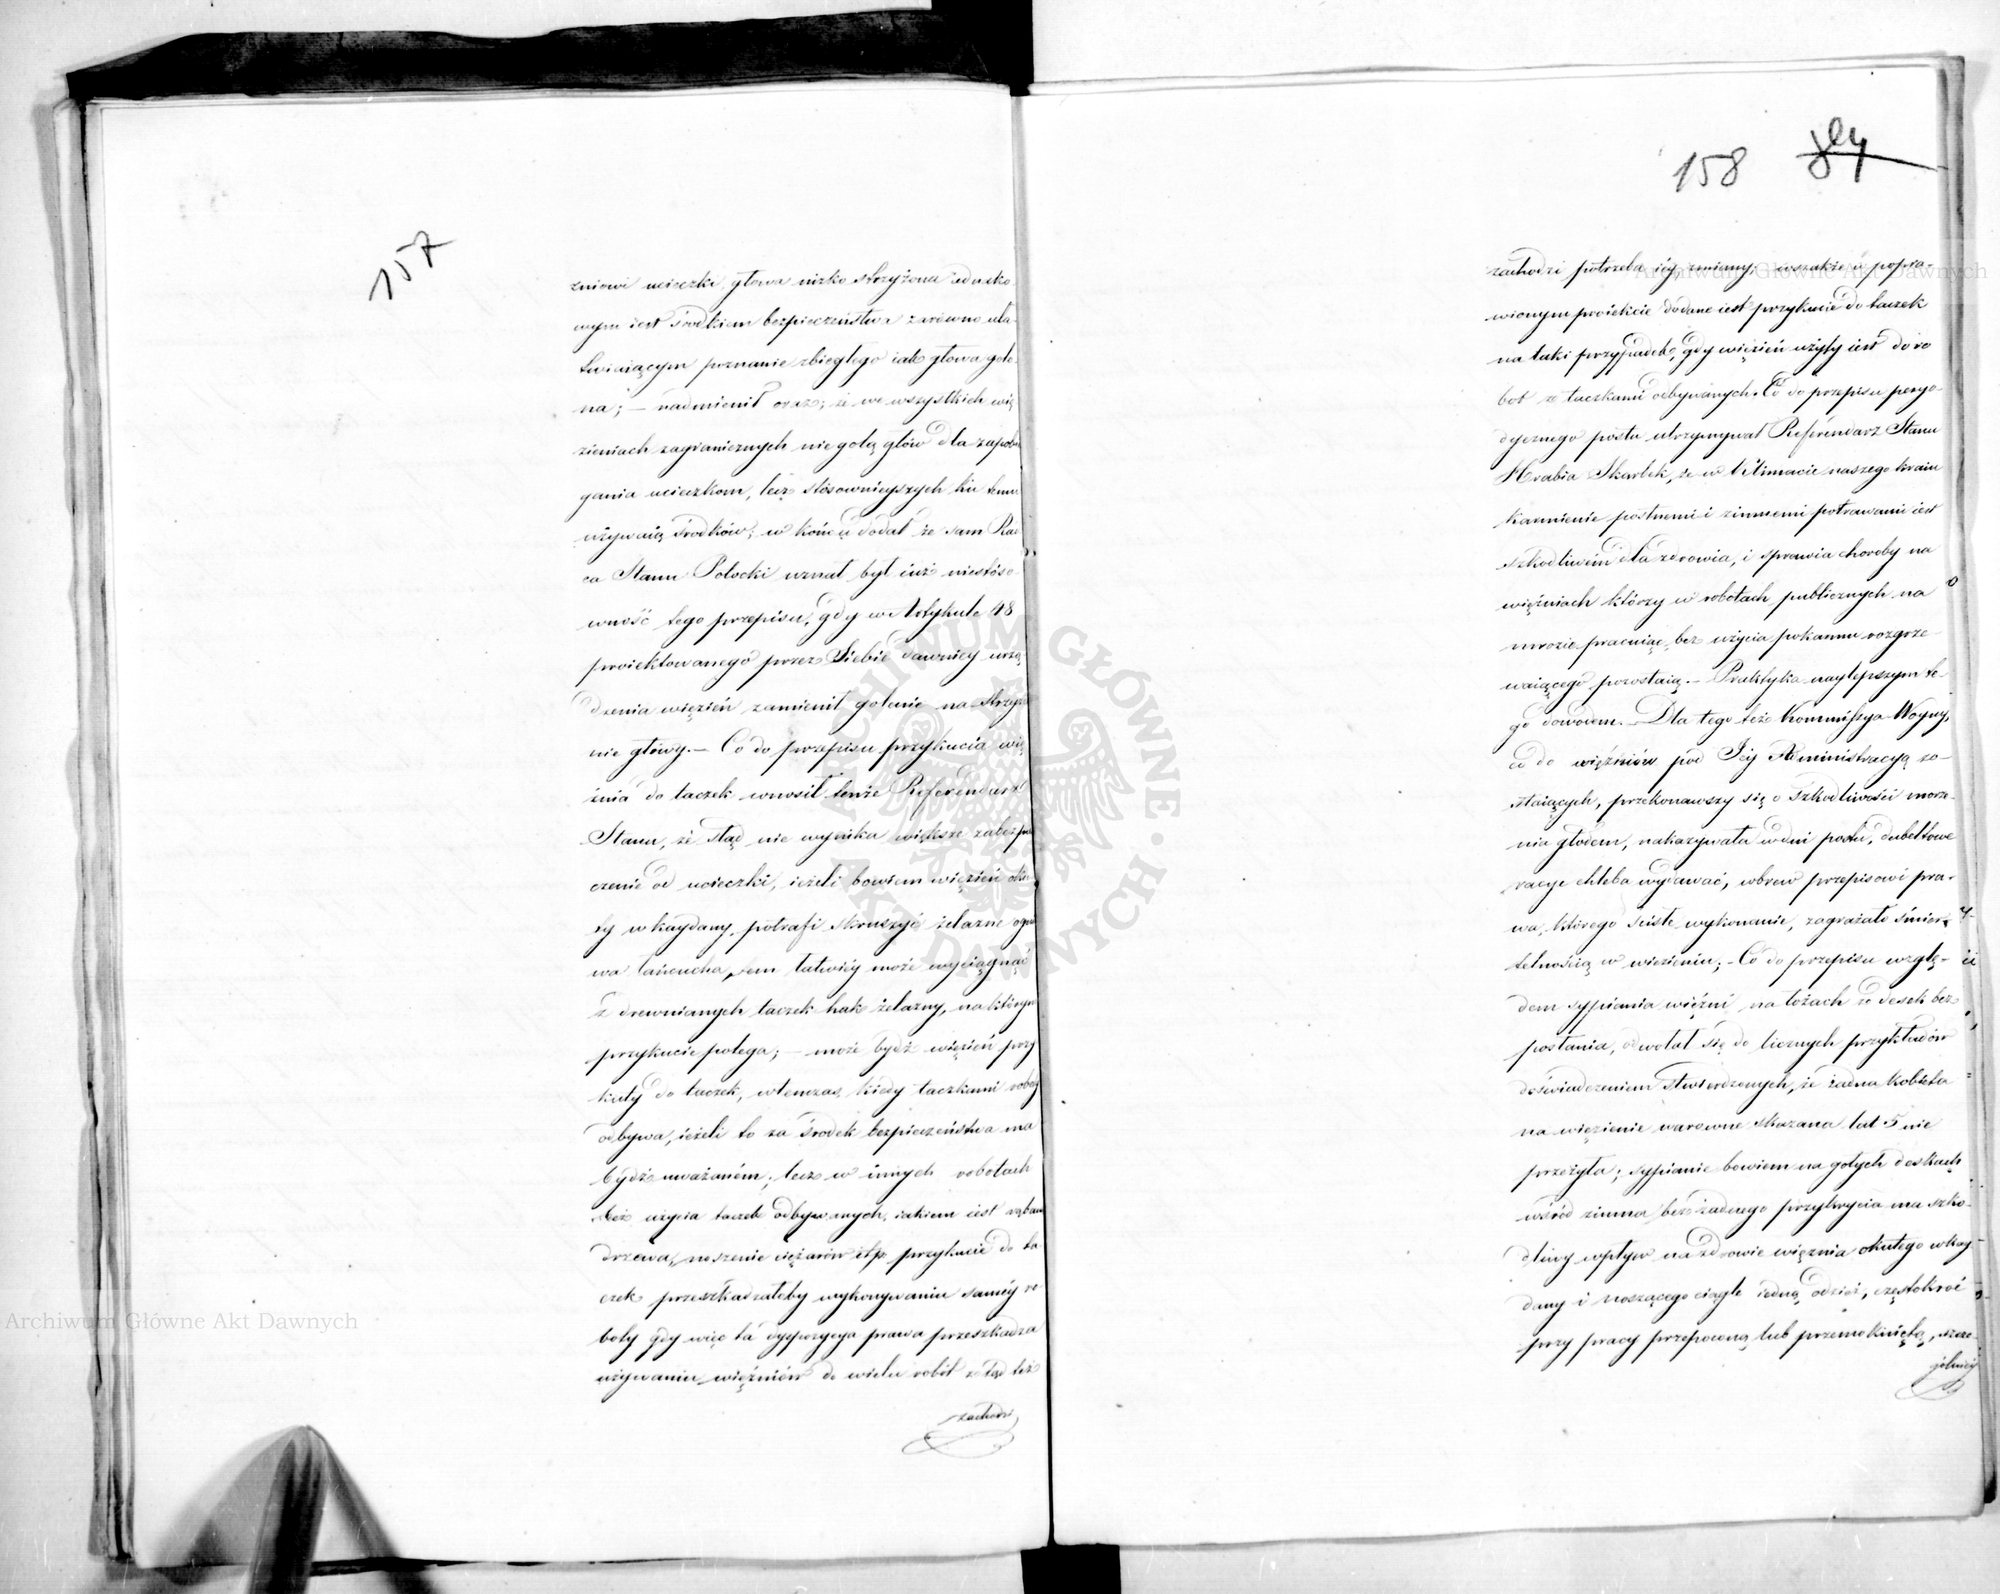 157
zniowi ucieczki, głowa nizko strzyżona iednako
wym iest środkiem bezpieczeństwa zarówno uła
twiaiącym poznanie zbiegłego iak głowa golo
na; – nadmienił oraz; że we wszystkich wię
zieniach zagranicznych nie golą głów dla zapobie
gania ucieczkom, lecz stosownieyszych ku temu
używaią środków; w końcu dodał że sam Rad
ca Stanu Potocki uznał był iuż niestoso
wność tego przepisu, gdy w Artykule 48
proiektowanego przez Siebie dawniey urzą
dzenia więzień zamienił golenie na strzyże
nie głowy. – Co do przepisu przykucia wię
źnia do taczek wnosił tenże Referendarz
Stanu, że stąd nie wynika większe zabezpie
czenie od ucieczki, ieżeli bowiem więzień oku
ty w kaydany, potrafi skruszyć żelazne ogni
wa łańcucha, tem łatwiéy może wyciągnąć
z drewnianych taczek hak żelazny, na którym
przykucie polega; – może bydź więzień przy
kuty do taczek, wtenczas kiedy taczkami roboty
odbywa, ieżeli to za środek bezpieczeństwa ma
bydź uważaném; lecz w innych robotach
bez użycia taczek odbywanych, iakiem iest rąbanie
drzewa, noszenie ciężarów itp. przykucie do ta
czek przeszkadzałoby wykonywaniu saméy ro
boty gdy więc ta dyspozycya prawa przeszkadza
używaniu więźniów do wielu robót ztąd też
zachodzi
158 84
zachodzi potrzeba iéy zmiany; wszakże w popra-
wionym proiekcie dodane iest przykucie do taczek
na taki przypadek, gdy więzień użyty iest do ro
bot z taczkami odbywanych. Co do przepisu peryo-
dycznego postu utrzymywał Referendarz Stanu
Hrabia Skarbek, że w klimacie naszego kraiu
karmienie postnemi i zimnemi potrawami iest
szkodliwém dla zdrowia, i sprawia choroby na
więźniach którzy w robotach publicznych na
mrozie pracuiąc, bez użycia pokarmu rozgrze
waiącego pozostaią. – Praktyka naylepszym te-
go dowodem. – Dla tego też Kommissya Woyny,
co do więźniów pod Iéy Administracyą zo-
staiących, przekonawszy się o szkodliwości morze-
nia głodem, nakazywała w dni postu, dubeltowe
racye chleba wydawać, wbrew przepisowi pra-
wa, którego ścisłe wykonanie, zagrażało śmier-
telnością w więzieniu; – Co do przepisu wzglę-
dem sypiania więźni na łożach z desek bez
posłania, odwołał się do licznych przykładów
doświadczeniem stwierdzonych, że żadna kobieta
na więzienie warowne skazana lat 5 nie
przeżyła; sypianie bowiem na gołych deskach
wśród zimna bez żadnego przykrycia ma szko-
dliwy wpływ na zdrowie więźnia okutego w kay-
dany i noszącego ciągle iedną odzież, częstokroć
przy pracy przepoconą lub przemokniętą, szcze-
gólniéy
ARCHIWUM GŁÓWNE AKT DAWNYCH
Archiwum Główne Akt Dawnych
Archiwum Główne Akt Dawnych